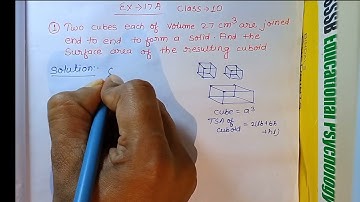 EX→17A Class→10
① Two cubes each of volume 27 cm³ are joined
end to end to form a solid. Find the
Surface area of the resulting cuboid
Solution:-
cube = a³
TSA of cuboid = 2(lb+bh
+hl)
SSB Educational Psychology